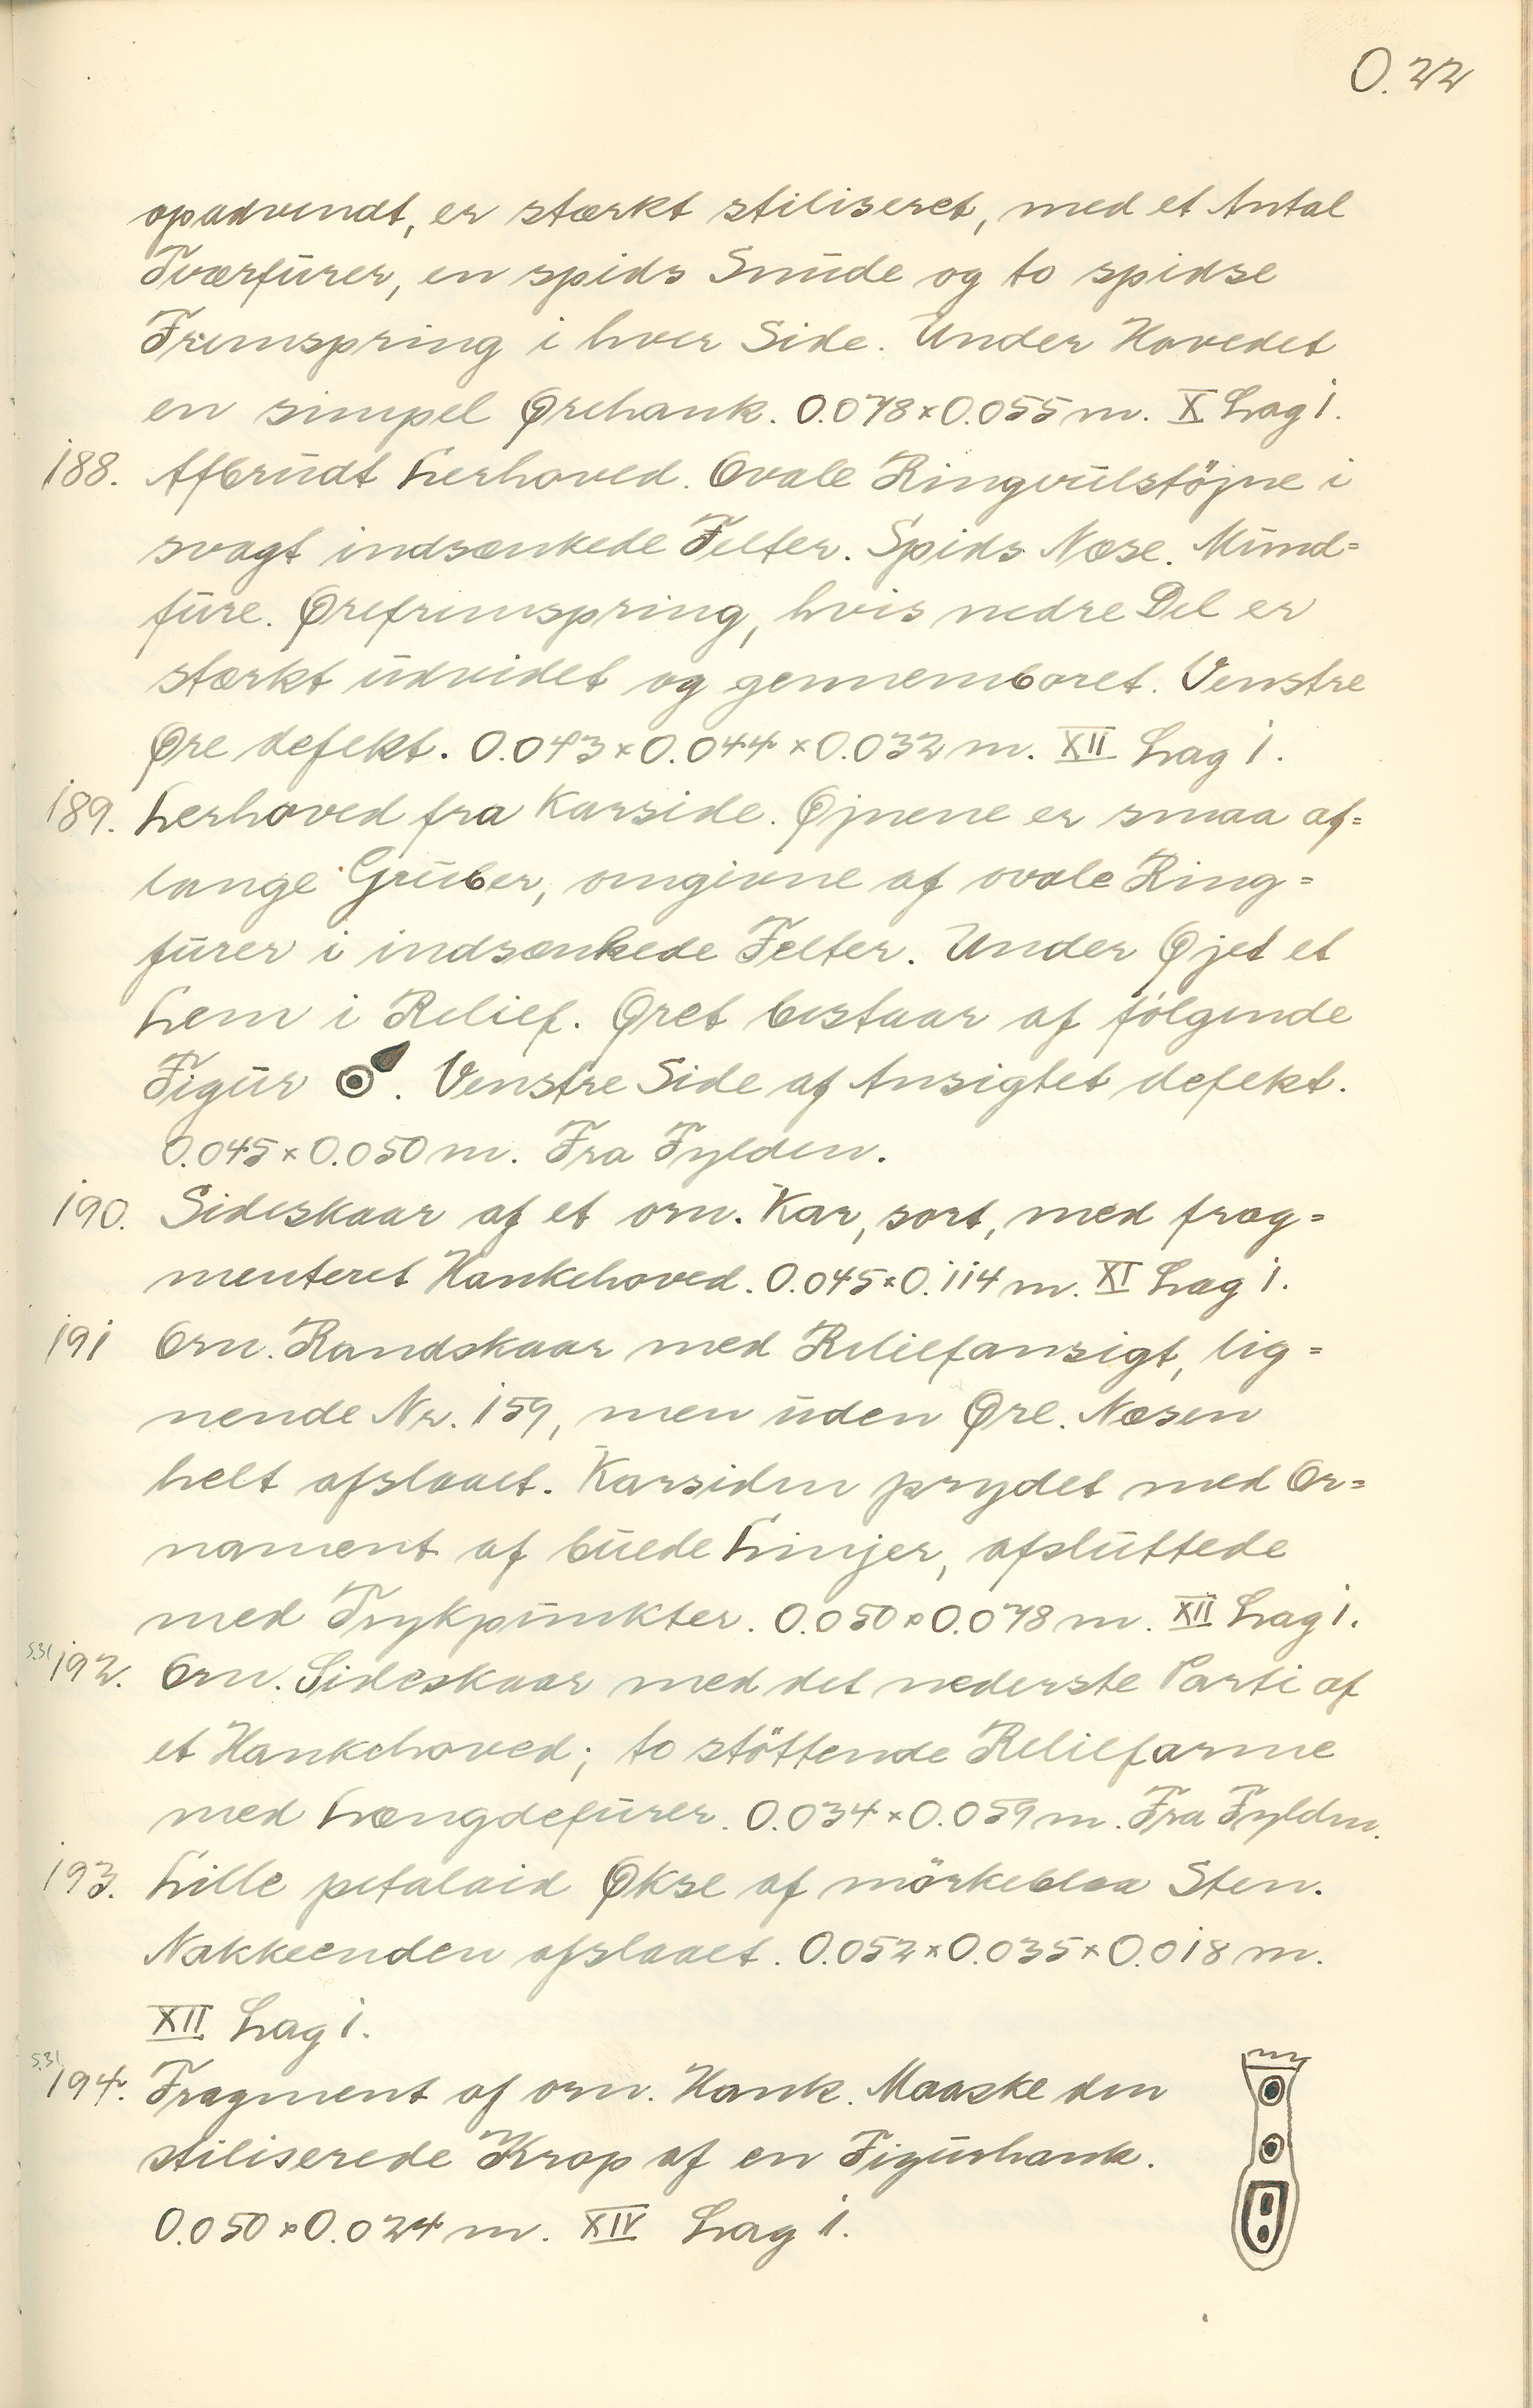 O. 22
opadvendt, er stærkt stiliseret, med et Antal
Tværfürer, en spids Snüde og to spidse
Fremspring i hver Side. Under Hovedet
en simpel Ørehank. 0.078 × 0.055 m. X Lag 1.
188. Afbrüdt Lerhoved. Ovale Ringvülstöjne i
svagt indsænkede Felter. Spids Næse. Münd=
füre. Ørefremspring, hvis nedre Del er
stærkt üdvidet og gennemboret. Venstre
Øre defekt. 0.043 × 0.044 × 0.032 m. XII Lag 1.
189. Lerhoved fra Karside. Øjnene er smaa af=
lange Grüber, omgivne af ovale Ring=
fürer i indsænkede Felter. Under Øjet et
Lem i Relief. Øret bestaar af følgende
Figür . Venstre Side af Ansigtet defekt.
0.045 × 0.050 m. Fra Fylden.
190. Sideskaar af et orn. Kar, sort, med frag=
menteret Hankehoved. 0.045 × 0.114 m. XI Lag 1.
191 Orn. Randskaar med Reliefansigt, lig=
nende Nr. 159, men üden Øre. Næsen
helt afslaaet. Karsiden prydet med Or=
nament af büede Linjer, afslüttede
med Trykpünkter. 0.050 × 0.078 m. XII Lag 1.
S.31 192. Orn. Sideskaar med det nederste Parti af
et Hankehoved; to støttende Reliefarme
med Længdefürer. 0.034 × 0.059 m. Fra Fylden.
193. Lille petaloid Økse af mörkeblaa Sten.
Nakkeenden afslaaet. 0.052 × 0.035 × 0.018 m.
XII Lag 1.
S.31 194. Fragment af orn. Hank. Maaske den
stiliserede Krop af en Figürhank.
0.050 × 0.024 m. XIV Lag 1.